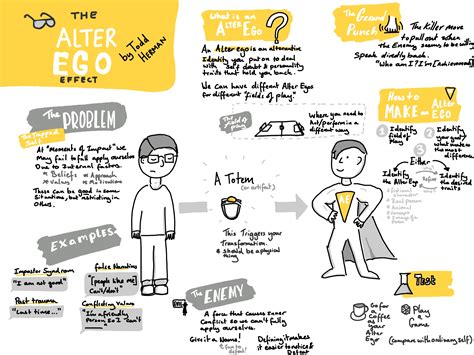 THE
ALTER
EGO
EFFECT
by Todd
HERMAN
What is an
ALTER EGO?
An Alter ego is an alternative
Identity you put on to deal
with self doubt & personality
traits that hold you back.
We can have different Alter Egos
for different fields of play.
The Ground
Punch
The Killer move
to pull out when
the Enemy seems to be calling
Speak directly back.
"Who am I? I'm [achievement]
The PROBLEM
The Trapped
Self
At "Moments of Impact" we
May fail to full apply ourselves
Due to internal factors.
Beliefs
Approach
Values
Motivations
These can be good in some
Situations, but restricting in
Others.
The Field of
play
Where you need to
Act/perform in a
different way
How to
MAKE an ALTER
EGO
Identify
field of
Play
Identify
your goal/
what matters
the most
Either
Identify
the Alter Ego
Identify
the desired
traits
A Totem
(or artifact)
AE
This Triggers your
Transformation.
Should be a physical
thing
Examples
Imposter Syndrom
"I am not good"
False Narrative
"[people like me]
Can't/don't"
Past trauma
"Last time..."
Conflicting Values
"I'm a friendly
Person so I can't
The
ENEMY
A force that causes Inner
Conflict so we can't fully
apply ourselves.
Give it a Name!
Defining it makes
it easier to notice &
Defeat
Test
Go for
a Coffee
as your
Alter
Ego
Play
a
Game
(Compare with ordinary self)